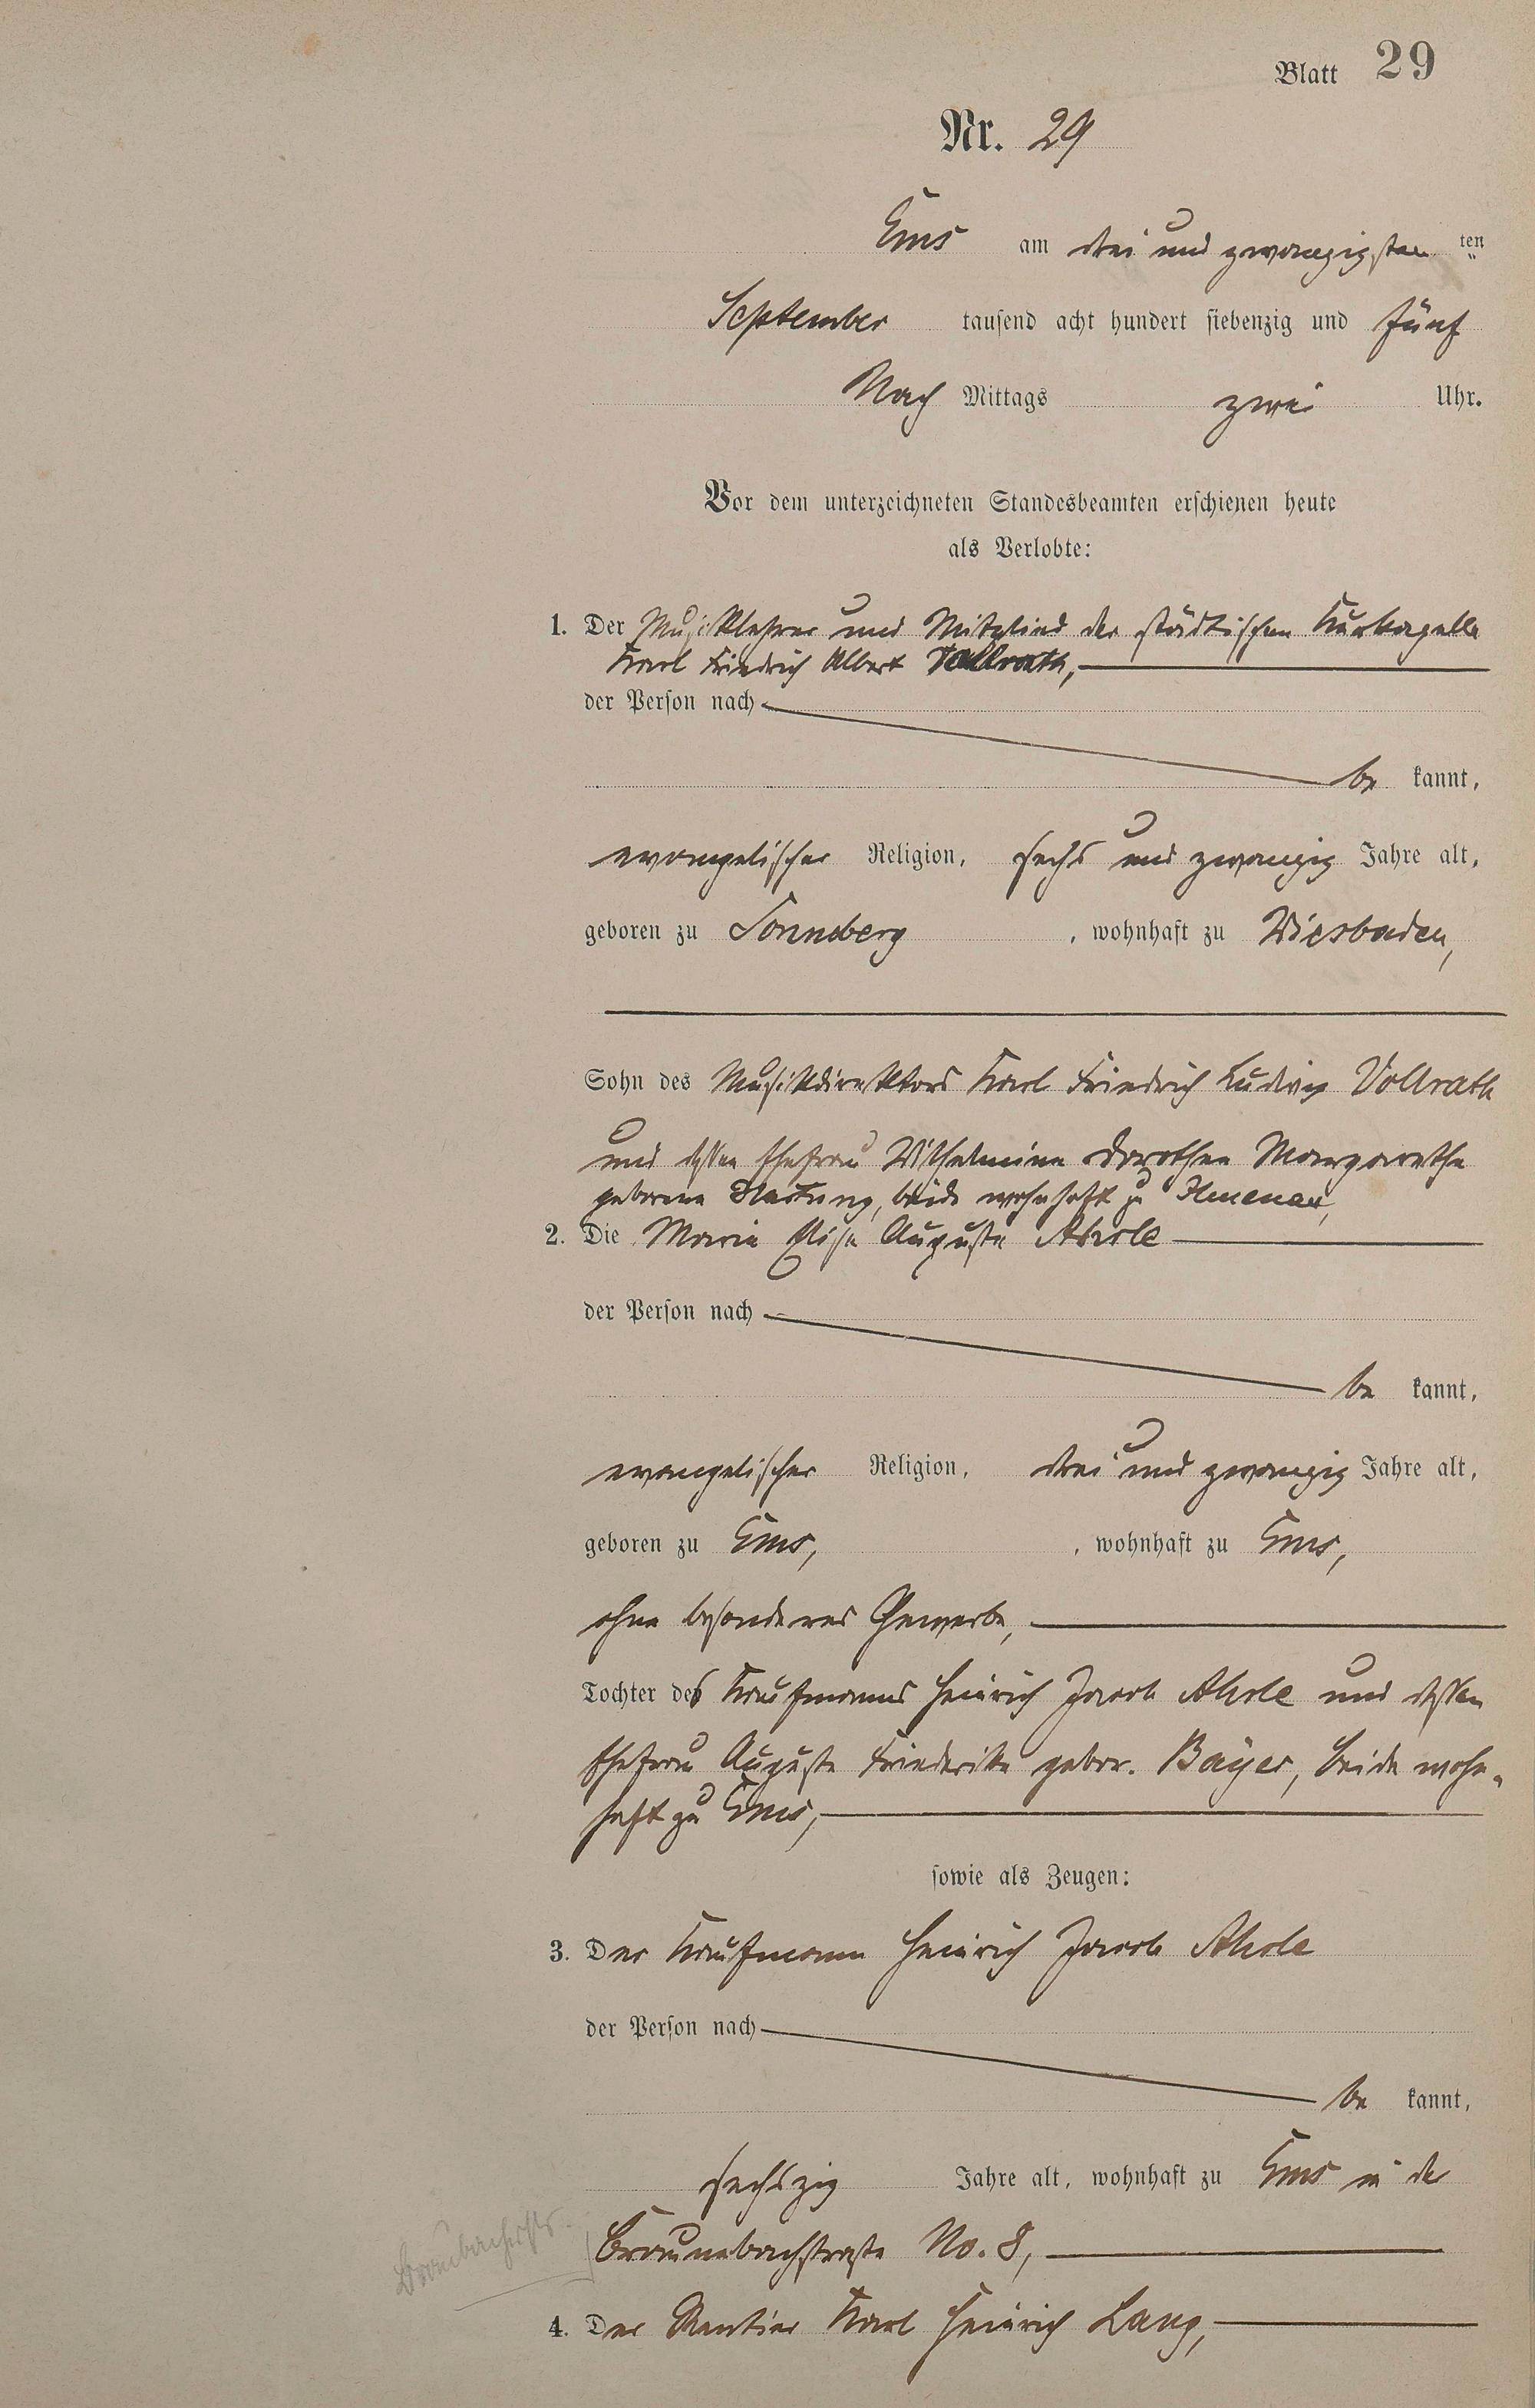 Blatt 29
Nr. 29
Ems am drei und zwanzigsten ten
September tausend acht hundert siebenzig und fünf
Nach Mittags zwei Uhr.
Vor dem unterzeichneten Standesbeamten erschienen heute
als Verlobte:
1. Der Musiklehrer und Mitglied der städtischen Kurkapelle
Karl Friedrich Albert Vollrath,
der Person nach
be kannt,
evangelischer Religion, sechs und zwanzig Jahre alt,
geboren zu Sonneberg, wohnhaft zu Wiesbaden,
Sohn des Musikdirektors Karl Friedrich Ludwig Vollrath
und dessen Ehefrau Wilhelmine Dorothea Margarethe
geborene Hartung, beide wohnhaft zu Ilmenau,
2. Die Maria Elise Auguste Ahrle
der Person nach
be kannt,
evangelischer Religion, drei und zwanzig Jahre alt,
geboren zu Ems, , wohnhaft zu Ems,
ohne besonderes Gewerbe,
Tochter des Kaufmanns Heinrich Jacob Ahrle und dessen
Ehefrau Auguste Friederike gebor. Bayer, beide wohn-
haft zu Ems,
sowie als Zeugen:
3. Der Kaufmann Heinrich Jacob Ahrle
der Person nach
be kannt,
sechszig Jahre alt, wohnhaft zu Ems in der
Braunebachstraße No. 8,
4. Der Rentier Karl Heinrich Lang,